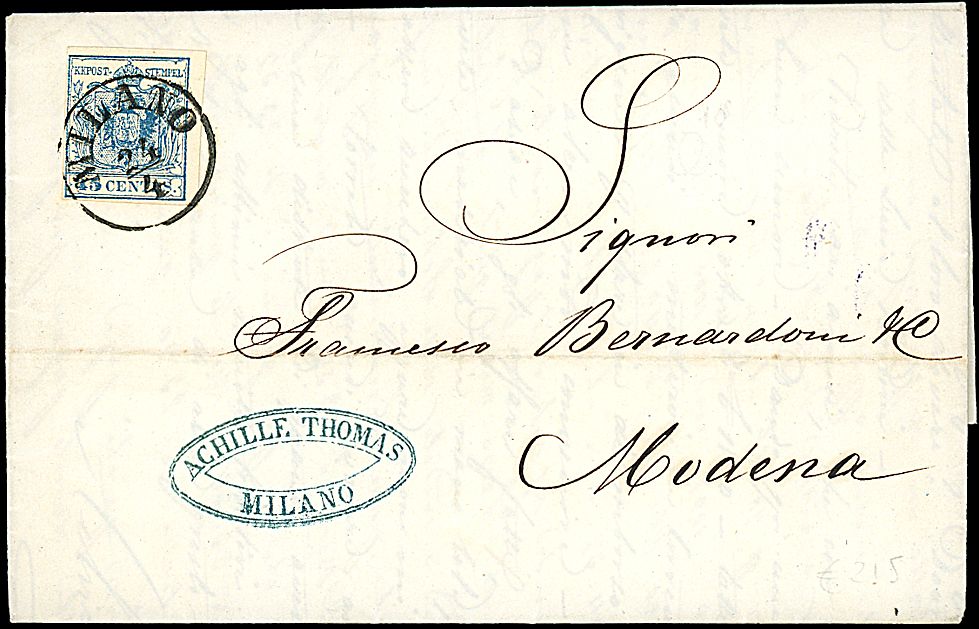 KKPOST-STEMPEL
MILANO
24/4
45 CENTES.
Signori
Francesco Bernardoni & C
Modena
ACHILLE THOMAS
MILANO
€ 215